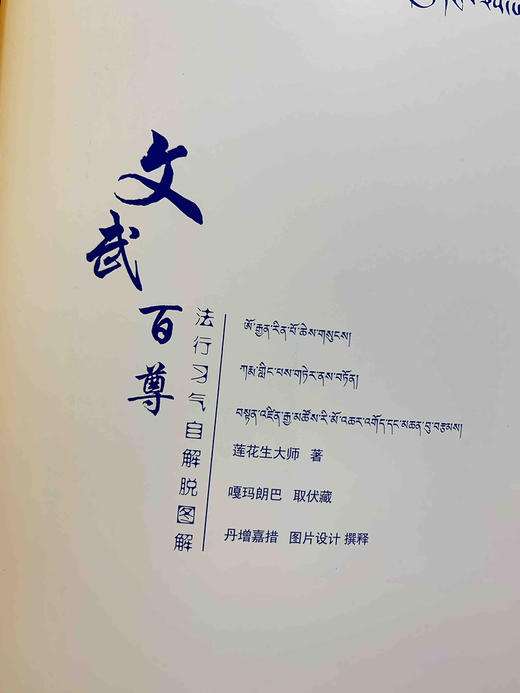 文武百尊
法行习气自解脱图解
ཨོ་རྒྱན་རིན་པོ་ཆེས་གསུངས།
ཀརྨ་གླིང་པས་གཏེར་ནས་བཏོན།
བསྟན་འཛིན་རྒྱ་མཚོས་རི་མོ་འཆར་འགོད་དང་མཆན་བུ་བརྩམས།
莲花生大师 著
嘎玛朗巴 取伏藏
丹增嘉措 图片设计 撰释